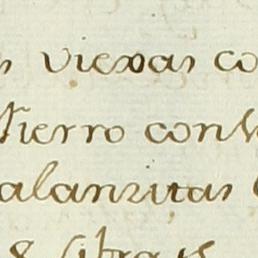 s viexas co
fierro con
alanzitas
8 libras